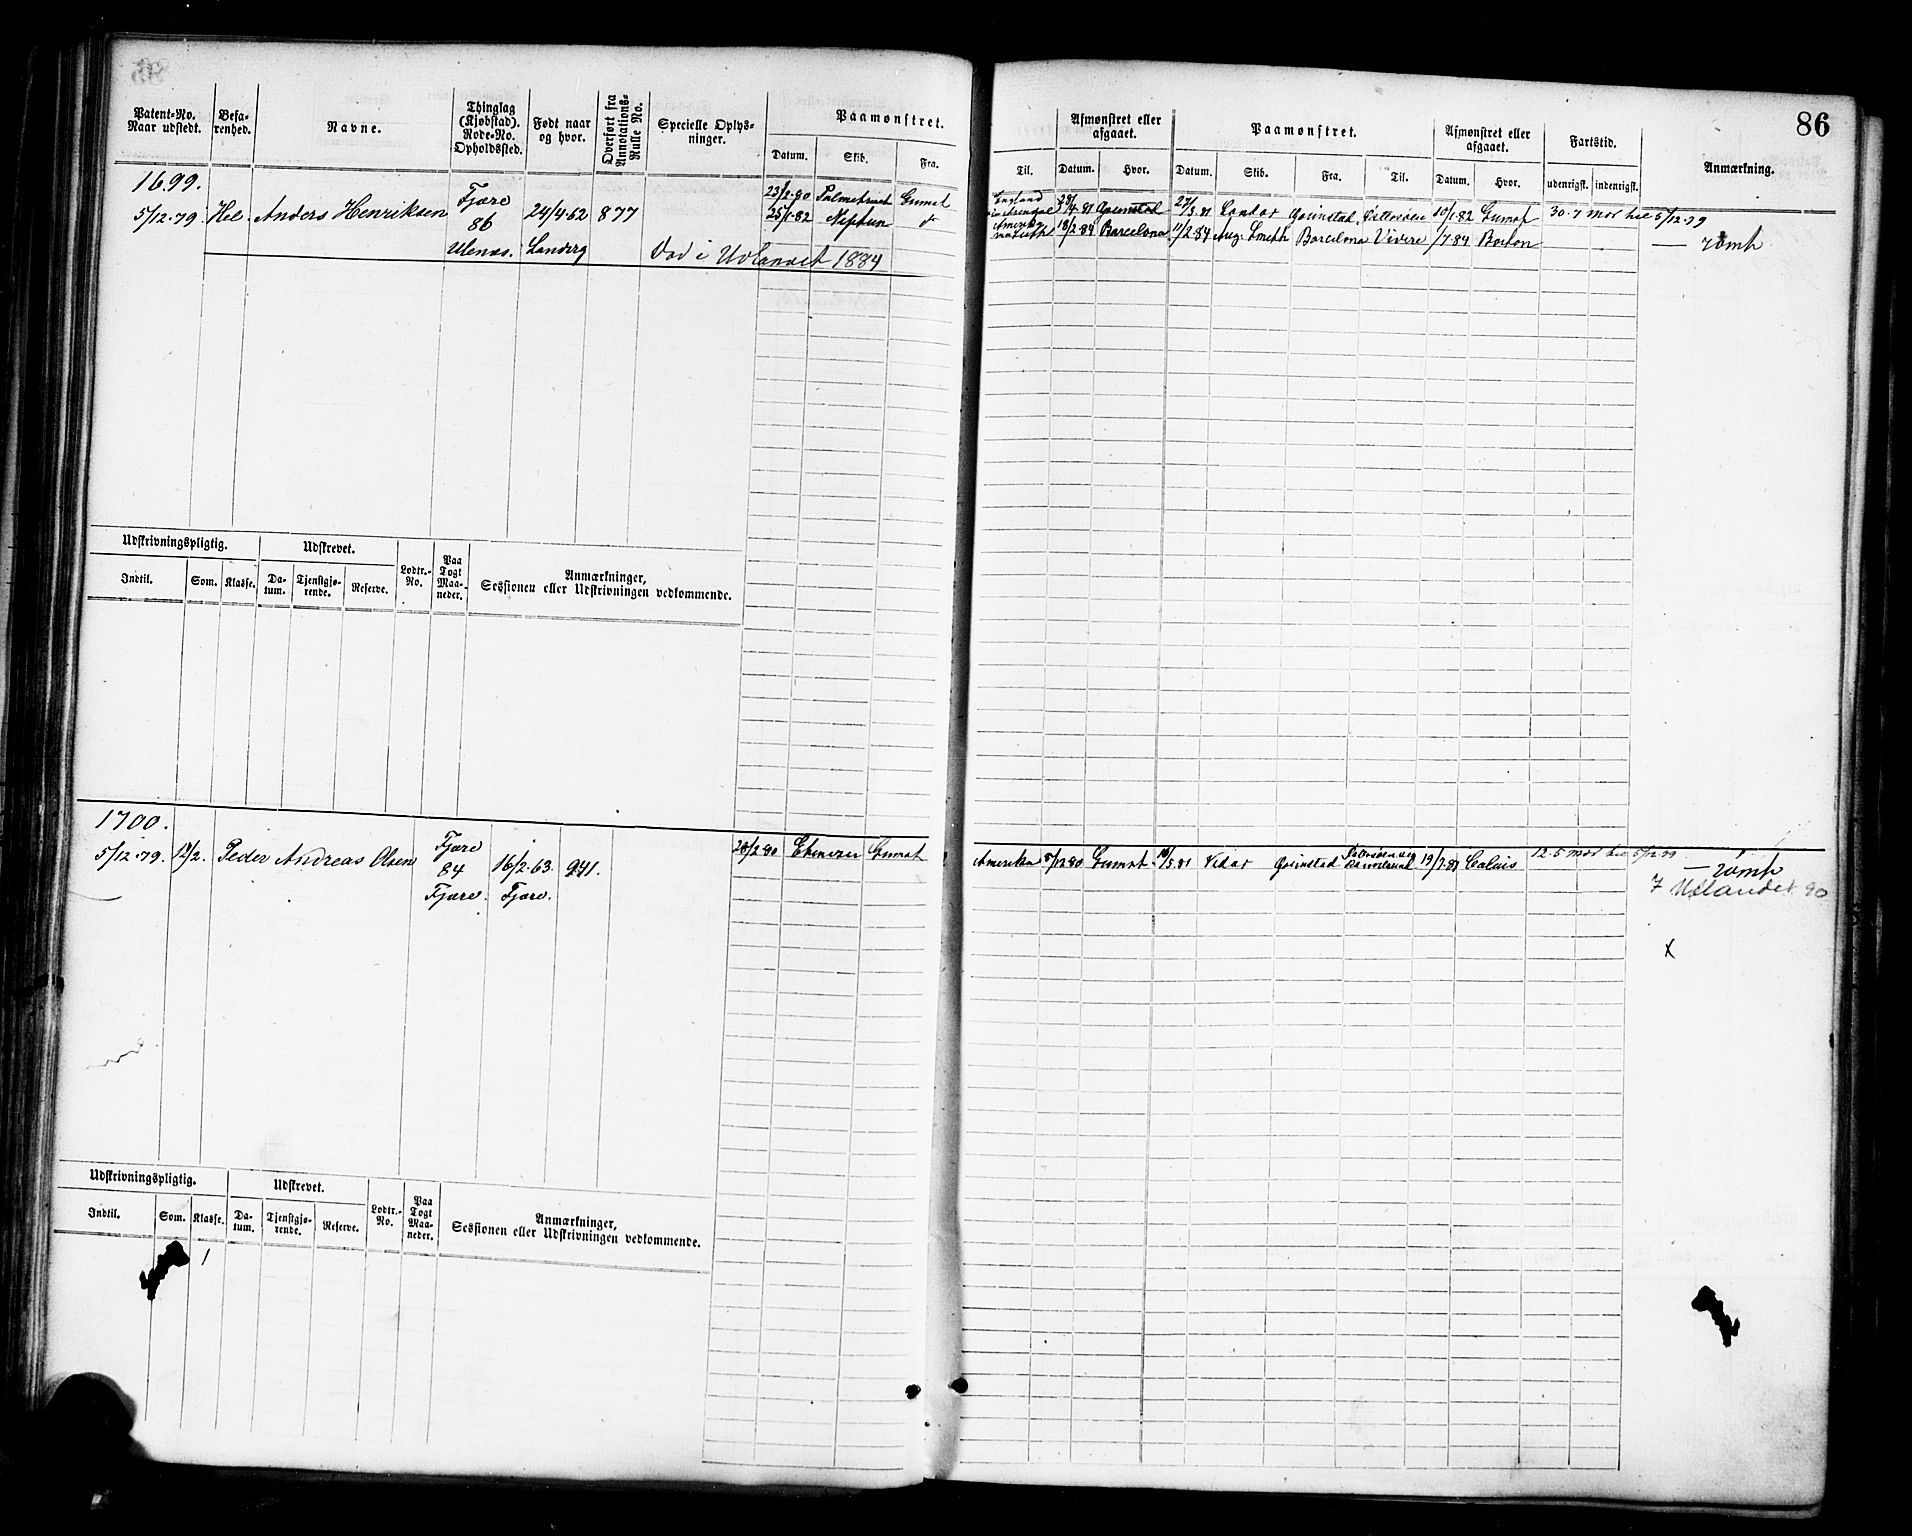 86
Patent-No.
Naar udstedt.
Befa-
renhed.
Navne.
Thinglag
(Kjøbstad).
Rode-No.
Opholdssted.
Født naar
og hvor.
Overført fra
Annotations-
Rulle No.
Specielle Oplys-
ninger.
Paamønstret.
Datum. Skib. Fra.
Til.
Afmønstret eller
afgaaet.
Datum. Hvor.
Paamønstret.
Datum. Skib. Fra. Til.
Afmønstret eller
afgaaet.
Datum. Hvor.
Fartstid.
udenrigst. indenrigst.
Anmærkning.
1699.
5/12.79. Hel. Anders Henriksen
Fjære
86
24/4.62
877
23/2.80 Grimst
25/1.82 Neptun
Landvig
Død i Udlandet 1884
England
Grimstad
18/2.84 Barcelona
Condor Grimstad 10/1.82 Grimst 30.7 Mdr til 5/12.79
Aug. Smith Barcelona Vivero /7.84 Boston
— rømt
Udskrivningspligtig.
Indtil. Som. Klasse.
Udskrevet.
Da-
tum.
Tjenstgjø-
rende.
Reserve.
Lodtr.-
No.
Paa
Togt
Maa-
neder.
Anmærkninger,
Sessionen eller Udskrivningen vedkommende.
1700.
5/12.79. 12/2. Peder Andreas Olsen
Fjære
84
Fjære.
16/2.63.
Fjære.
941.
28/2.80 Ebenezer Grimst
Amerika 8/12.80 Grimst 16/5.81 Vidar Grimstad 19/7.81 Calais 12.5 Mdr til 5/12.79
— rømt
7 Udlandet 90
x
Udskrivningspligtig.
Indtil. Som. Klasse.
Udskrevet.
Da-
tum.
Tjenstgjø-
rende.
Reserve.
Lodtr.-
No.
Paa
Togt
Maa-
neder.
Anmærkninger,
Sessionen eller Udskrivningen vedkommende.
1